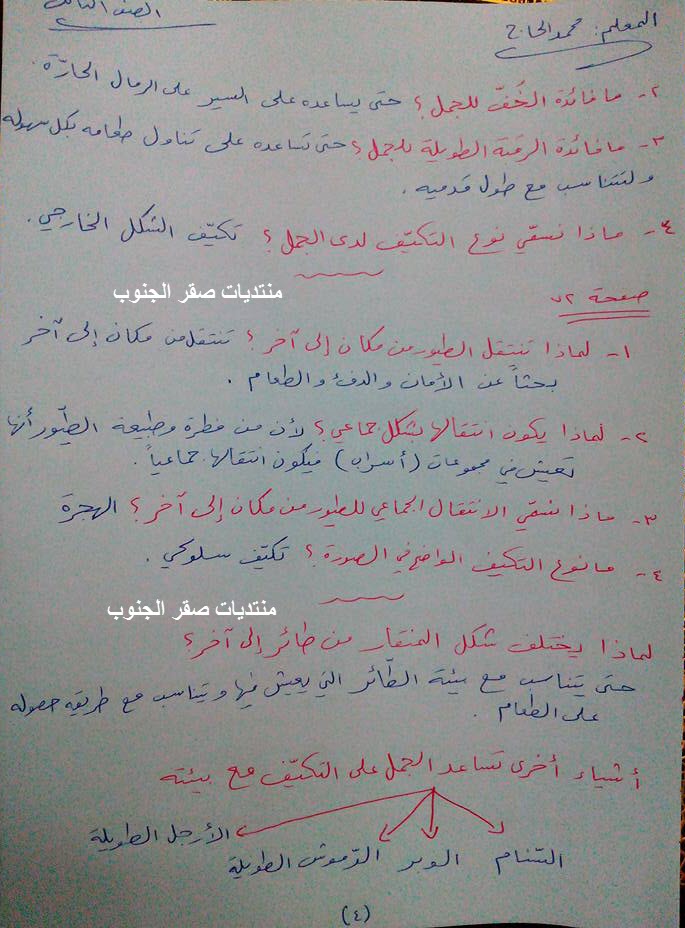 المعلم: محمد الحاج
الصف الثالث
٢- ما فائدة الخُفّ للجمل؟ حتى يساعده على السير على الرمال الحارّة.
٣- ما فائدة الرقبة الطويلة للجمل؟ حتى تساعده على تناول طعامه بكل سهولة
ولتتناسب مع طول قدميه.
٤- ماذا نسمّي نوع التكيّف لدى الجمل؟ تكيّف الشكل الخارجي.
منتديات صقر الجنوب
صفحة ٧٢
١- لماذا تنتقل الطيور من مكان إلى آخر؟ تنتقل من مكان إلى آخر
بحثاً عن الأمان والدفء والطعام.
٢- لماذا يكون انتقالها بشكل جماعي؟ لأن من فطرة وطبيعة الطّيور أنها
تعيش في مجموعات (أسراب) فيكون انتقالها جماعياً.
٣- ماذا نسمّي الانتقال الجماعي للطيور من مكان إلى آخر؟ الهجرة
٤- ما نوع التكيف الواضح في الصورة؟ تكيّف سلوكي.
منتديات صقر الجنوب
لماذا يختلف شكل المنقار من طائر إلى آخر؟
حتى يتناسب مع بيئة الطّائر التي يعيش فيها ويتناسب مع طريقة حصوله
على الطعام.
أشياء أخرى تساعد الجمل على التكيّف مع بيئته
السّنام الوبر الرّموش الطويلة الأرجل الطويلة
(٤)